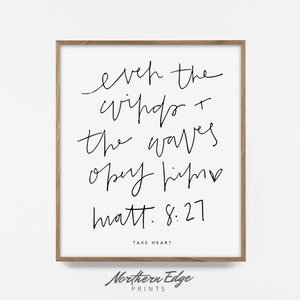 even the
winds +
the waves
obey him♥
matt. 8:27
TAKE HEART
Northern Edge
PRINTS